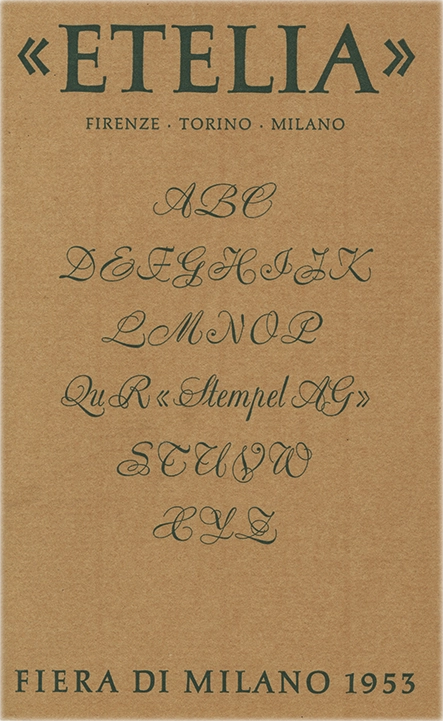 «ETELIA»
FIRENZE · TORINO · MILANO
ABC
DEFGHIJK
LMNOP
Qu R «Stempel AG»
STUVW
XYZ
FIERA DI MILANO 1953